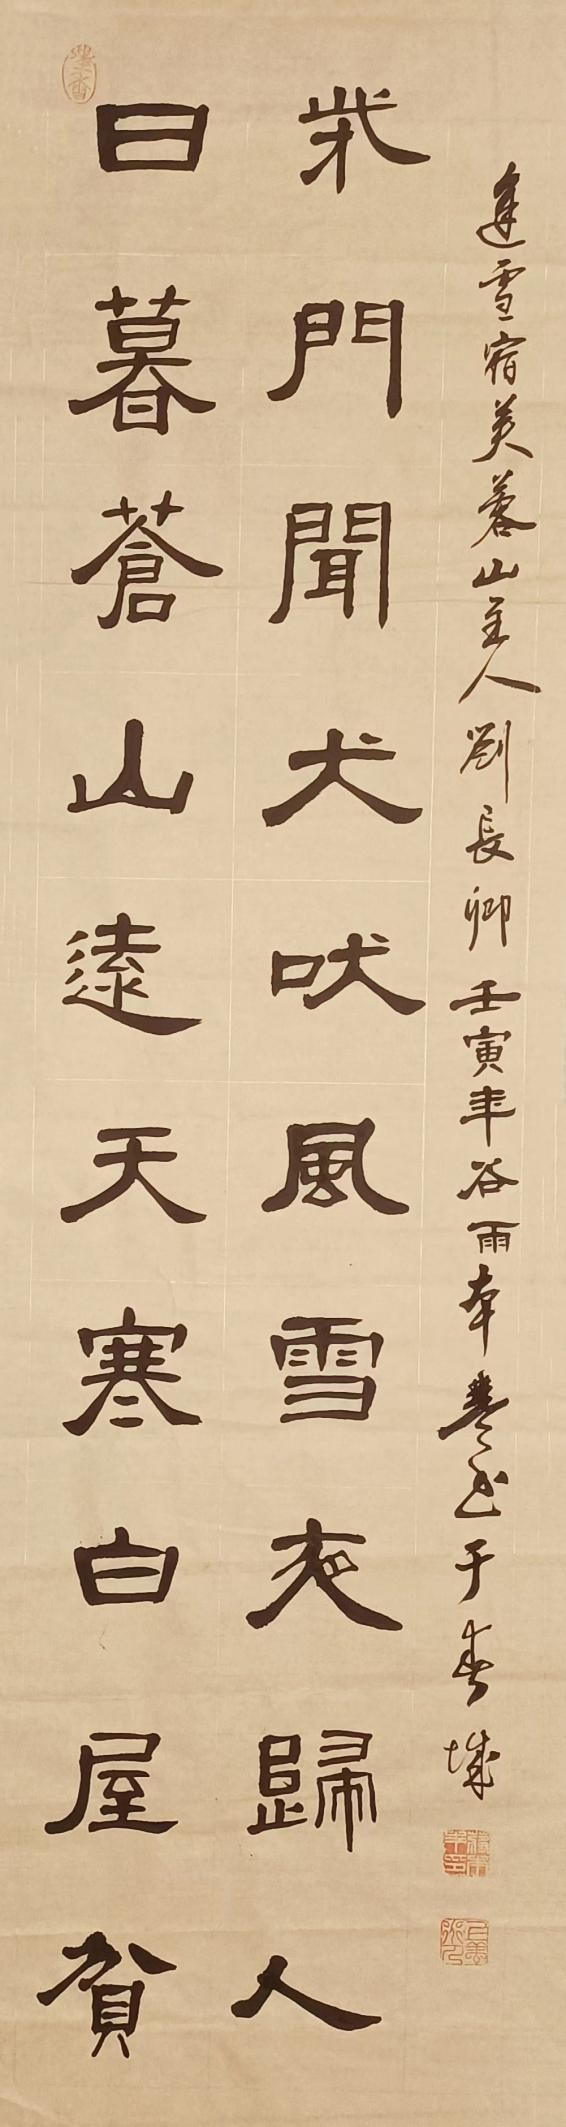 日暮蒼山遠天寒白屋貧
柴門聞犬吠風雪夜歸人
逢雪宿芙蓉山主人劉長卿壬寅年谷雨书于春城
墨香